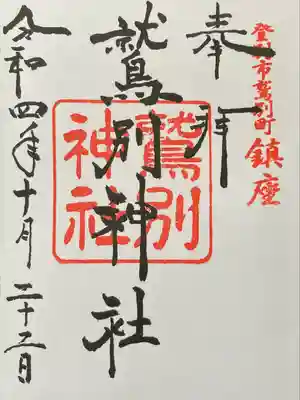 登別市鷲別町鎮座
奉拝
鷲別神社
鷲別神社
令和四年十月二十三日